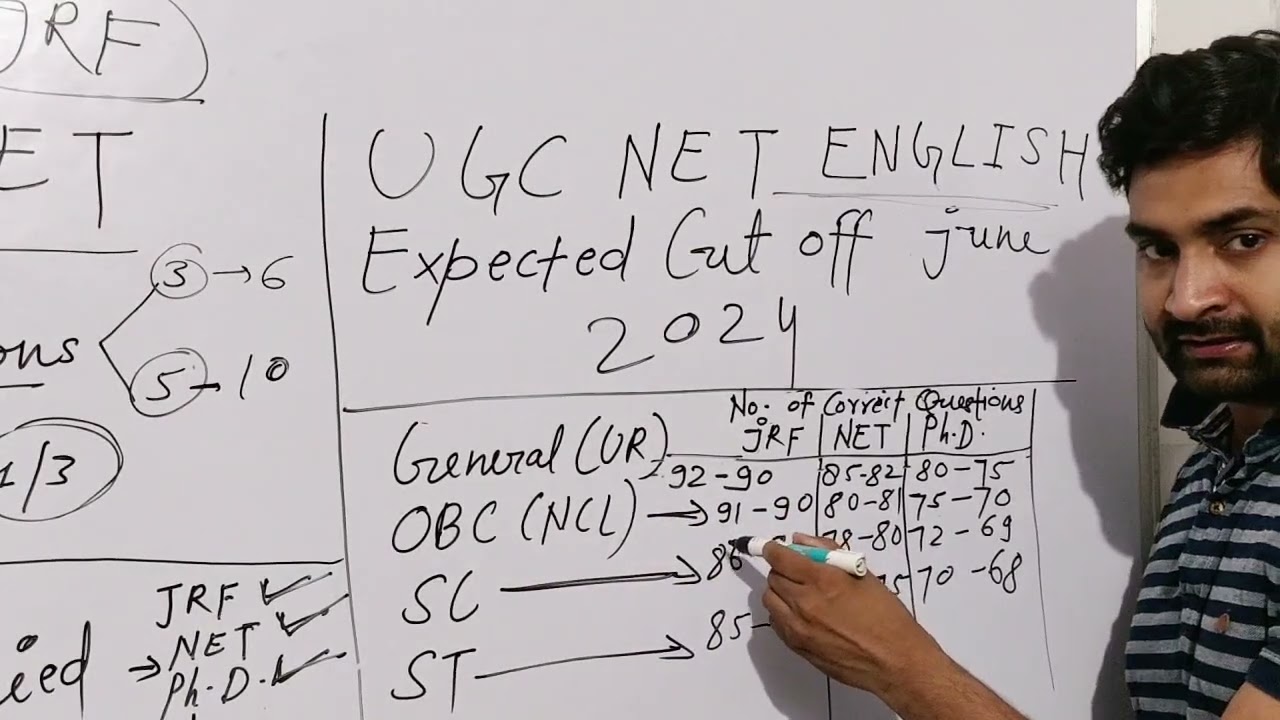 JRF
ET
3 → 6
ons
5 → 10
1/3
JRF ✓
NET ✓
ied → Ph.D. ✓
UGC NET ENGLISH
Expected Cut off june
2024
No. of Correct Questions
JRF NET Ph.D.
General (UR) 92-90 85-82 80-75
OBC (NCL) → 91-90 80-81 75-70
SC → 86 78-80 72-69
ST → 85- 75 70-68